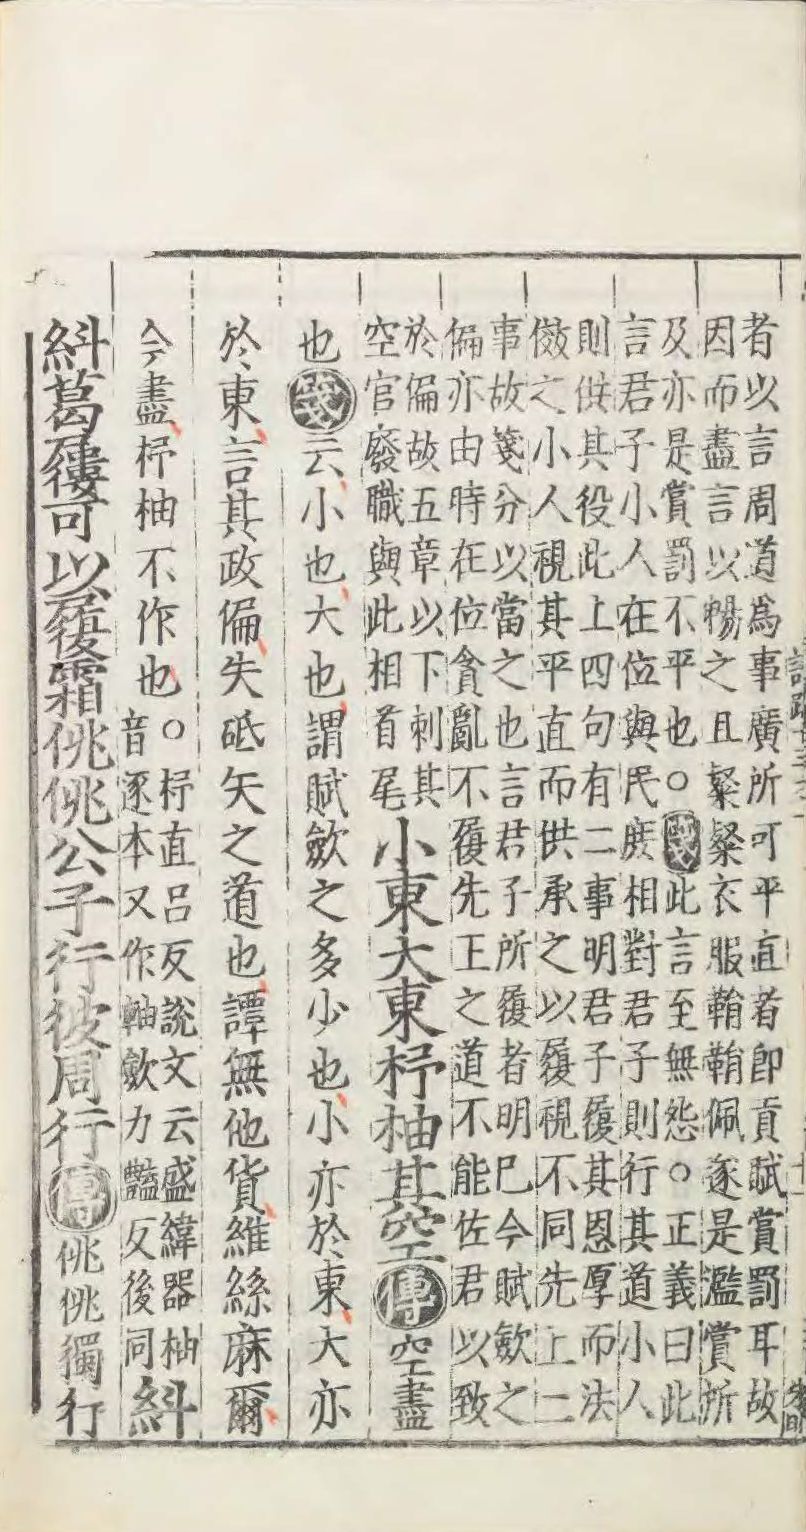 者以言周道為事廣所可平直者即貢賦賞罰耳故
因而盡言以暢之且粲粲衣服鞘鞘佩遂是濫賞所
及亦是賞罰不平也○箋此言至無怨○正義曰此
言君子小人在位與民庶相對君子則行其道小人
則供其役此上四句有二事明君子履其恩厚而法
傚之小人視其平直而供承之以履視不同先上二
事故箋分以當之也言君子所履者明巳今賦斂之
偏亦由時在位貪亂不履先王之道不能佐君以致
於偏故五章以下刺其
空官廢職與此相首尾
小東大東杼柚其空傳空盡
也箋云小也大也謂賦斂之多少也小亦於東大亦
於東言其政偏失砥矢之道也譚無他貨維絲麻爾
今盡杼柚不作也
○杼直呂反說文云盛緯器柚
音逐本又作軸斂力豔反後同
糾
糾葛屨可以履霜佻佻公子行彼周行傳佻佻獨行